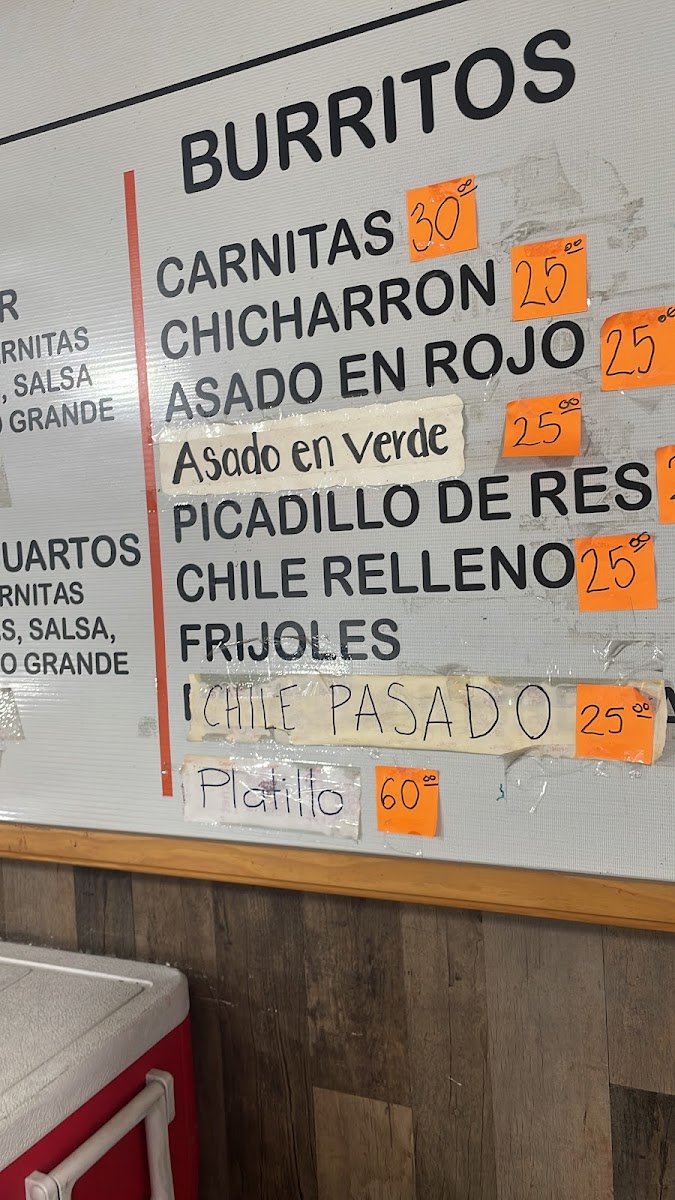 BURRITOS
CARNITAS 30.00
CHICHARRON 25.00
ASADO EN ROJO 25.00
Asado en verde 25.00
PICADILLO DE RES
CHILE RELLENO 25.00
FRIJOLES
CHILE PASADO 25.00
Platillo 60.00
R
RNITAS
, SALSA
O GRANDE
UARTOS
RNITAS
S, SALSA,
O GRANDE